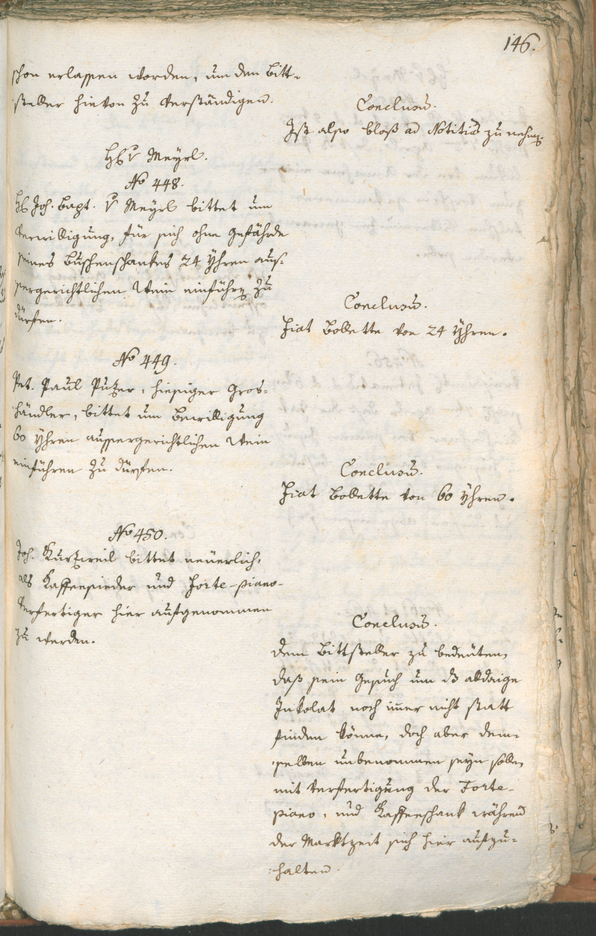 146.
schon erlassen worden, um den Bitt-
steller hievon zu verständigen.
Conclusum.
Ist also bloß ad Notitiã zu nehmẽ.
H. v Meyrl.
No 448.
H. Joh. Bapt. v Meyrl bittet um
Bewilligung, für sich ohne Gefährde
seines Buschenschankes 24 Yhren aus-
sergerichtlichen Wein einführẽ zu
dürfen.
Conclusum.
Fiat Bollette von 24 Yhren.
No 449.
Pet. Paul Putzer, hiesiger Gros-
händler, bittet um Bewilligung
60 Yhren aussergerichtlichen Wein
einführen zu dürfen.
Conclusum.
Fiat Bollette von 60 Yhren.
No 450.
Joh. Kurzweil bittet neuerlich,
als Kaffeesieder und Forte-piano-
Verfertiger hier aufgenommen
zu werden.
Conclusum.
Dem Bittsteller zu bedeuten,
daß sein Gesuch um das alldaige
Inkolat noch immer nicht statt
finden könne, doch aber dem-
selben unbenommen seyn solle,
mit Verfertigung der Forte-
piano, und Kaffeeschank während
der Marktzeit sich hier aufzu-
halten.